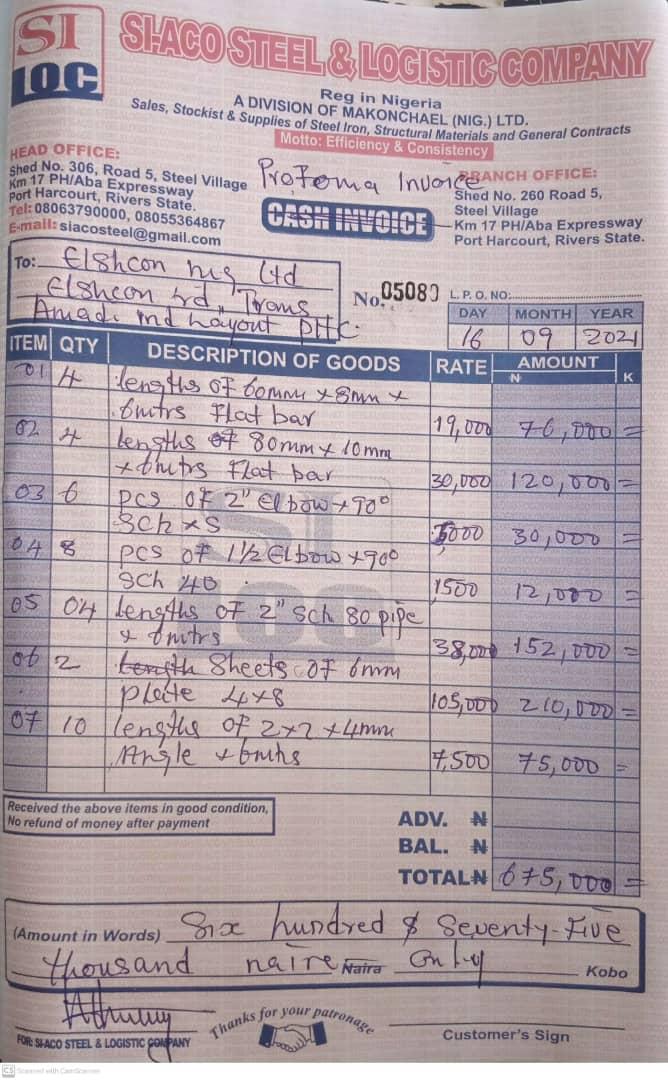 SI
LOC
SI-ACO STEEL & LOGISTIC COMPANY
Reg in Nigeria
A DIVISION OF MAKONCHAEL (NIG.) LTD.
Sales, Stockist & Supplies of Steel Iron, Structural Materials and General Contracts
Motto: Efficiency & Consistency
HEAD OFFICE:
Shed No. 306, Road 5, Steel Village
Km 17 PH/Aba Expressway
Port Harcourt, Rivers State.
Tel: 08063790000, 08055364867
E-mail: siacosteel@gmail.com
Profoma Invoice
CASH INVOICE
BRANCH OFFICE:
Shed No. 260 Road 5,
Steel Village
Km 17 PH/Aba Expressway
Port Harcourt, Rivers State.
To: Elshcon nig Ltd
Elshcon rd, Trans
Amadi ind Layout PHC.
No. 05080 L.P.O. NO:
DAY MONTH YEAR
16 09 2021
ITEM QTY DESCRIPTION OF GOODS RATE AMOUNT
N K
01 4 lengths of 60mm x 8mm x
6mtrs Flat bar 19,000 76,000 =
02 4 lengths of 80mm x 10mm
x 6mtrs Flat bar 30,000 120,000 =
03 6 pcs of 2" Elbow x 90°
Sch xs 5000 30,000 =
04 8 pcs of 1½ Elbow x 90°
Sch 40 1500 12,000 =
05 04 lengths of 2" Sch 80 pipe
x 6mtrs 38,000 152,000 =
06 2 Length Sheets of 6mm
plate 4x8 105,000 210,000 =
07 10 lengths of 2x2 x 4mm
Angle x 6mtrs 7,500 75,000 =
Received the above items in good condition,
No refund of money after payment
ADV. ₦
BAL. ₦
TOTAL ₦ 675,000 =
(Amount in Words) Six hundred & Seventy-Five
thousand naire Naira Only Kobo
Thanks for your patronage
FOR: SI-ACO STEEL & LOGISTIC COMPANY
Customer's Sign
CS Scanned with CamScanner